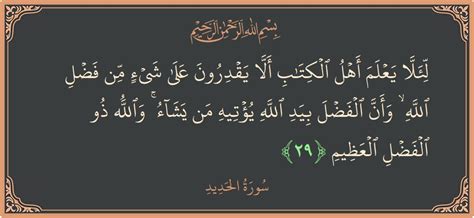 بِسْمِ اللَّهِ الرَّحْمَٰنِ الرَّحِيمِ
لِّئَلَّا يَعْلَمَ أَهْلُ الْكِتَابِ أَلَّا يَقْدِرُونَ عَلَىٰ شَيْءٍ مِّن فَضْلِ
اللَّهِ ۙ وَأَنَّ الْفَضْلَ بِيَدِ اللَّهِ يُؤْتِيهِ مَن يَشَاءُ ۚ وَاللَّهُ ذُو
الْفَضْلِ الْعَظِيمِ ﴿٢٩﴾
سُورَةُ الحَدِيدِ